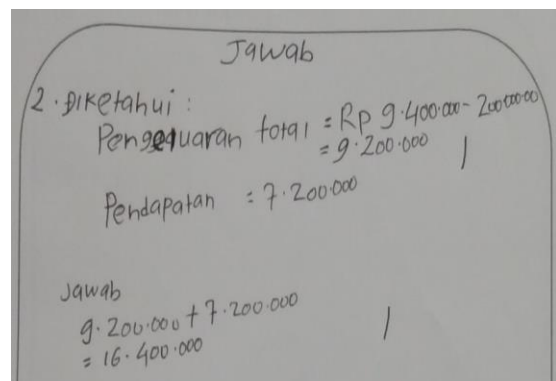 Jawab
2. Diketahui :
Pengeluaran total = Rp 9.400.000 - 200.000.00
= 9.200.000
Pendapatan = 7.200.000
Jawab
9.200.000 + 7.200.000
= 16.400.000